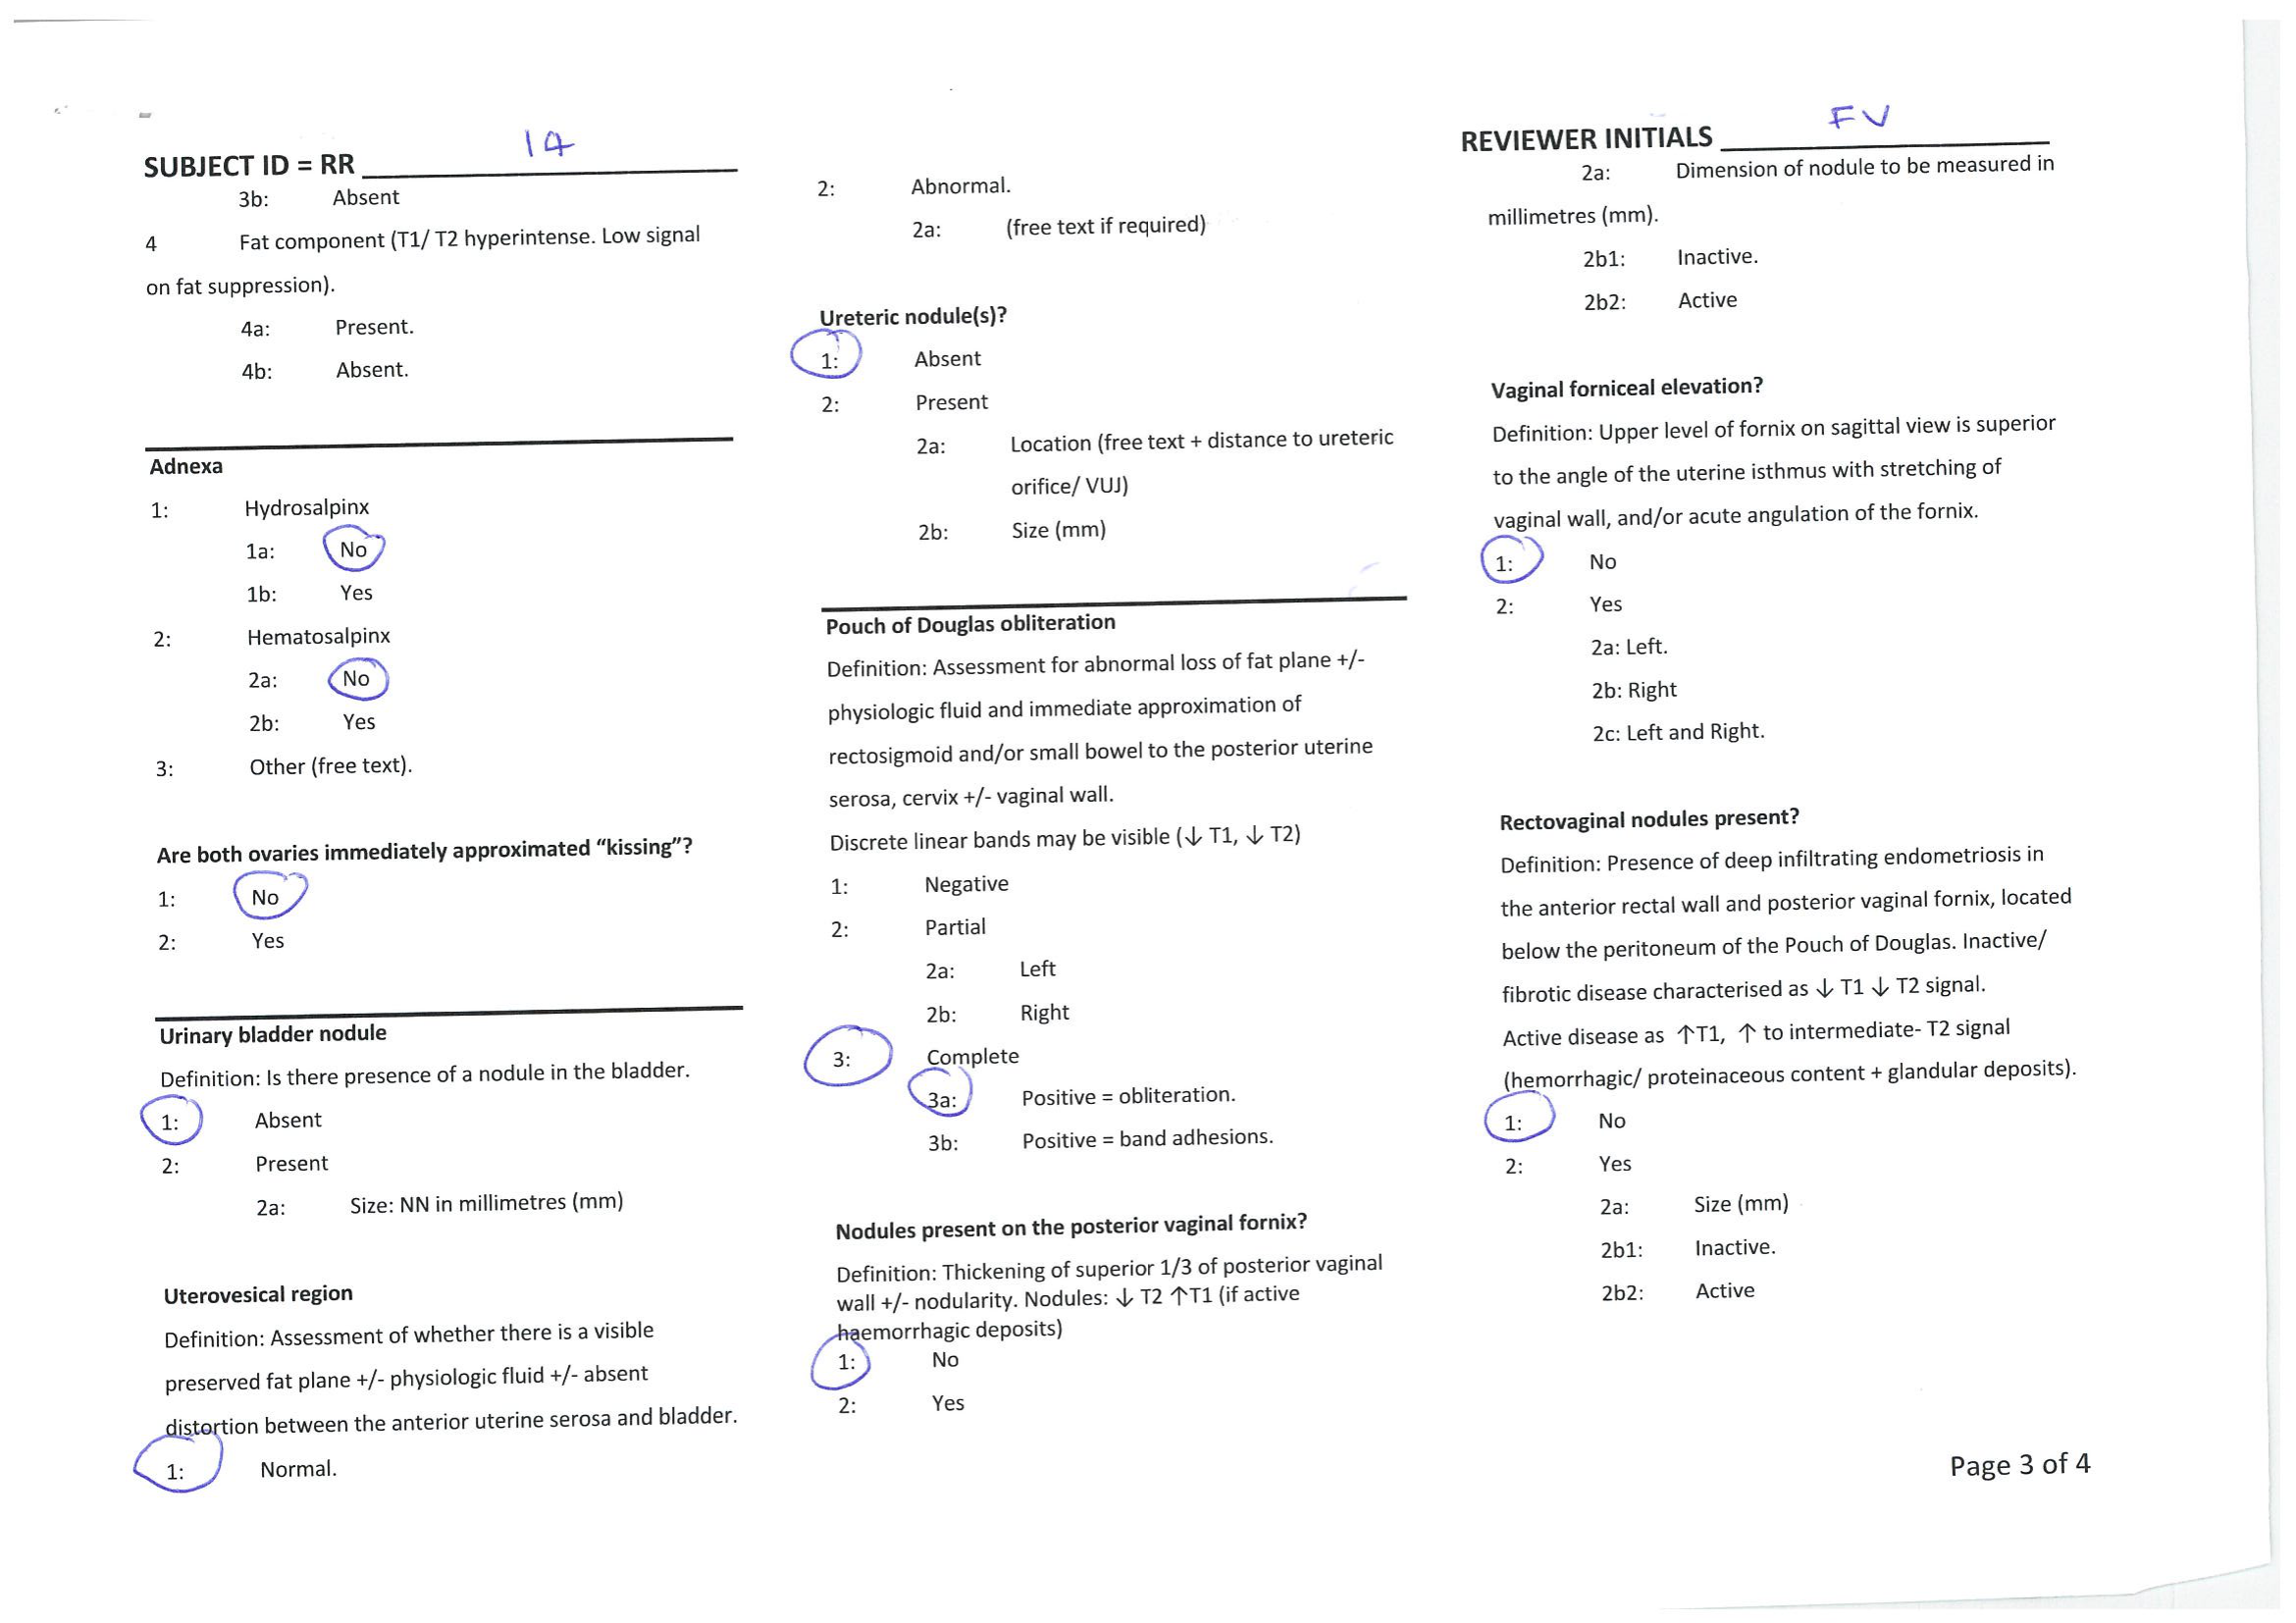 SUBJECT ID = RR 14
3b: Absent
4 Fat component (T1/ T2 hyperintense. Low signal
on fat suppression).
4a: Present.
4b: Absent.
Adnexa
1: Hydrosalpinx
1a: No
1b: Yes
2: Hematosalpinx
2a: No
2b: Yes
3: Other (free text).
Are both ovaries immediately approximated “kissing”?
1: No
2: Yes
Urinary bladder nodule
Definition: Is there presence of a nodule in the bladder.
1: Absent
2: Present
2a: Size: NN in millimetres (mm)
Uterovesical region
Definition: Assessment of whether there is a visible
preserved fat plane +/- physiologic fluid +/- absent
distortion between the anterior uterine serosa and bladder.
1: Normal.
2: Abnormal.
2a: (free text if required)
Ureteric nodule(s)?
1: Absent
2: Present
2a: Location (free text + distance to ureteric
orifice/ VUJ)
2b: Size (mm)
Pouch of Douglas obliteration
Definition: Assessment for abnormal loss of fat plane +/-
physiologic fluid and immediate approximation of
rectosigmoid and/or small bowel to the posterior uterine
serosa, cervix +/- vaginal wall.
Discrete linear bands may be visible (↓ T1, ↓ T2)
1: Negative
2: Partial
2a: Left
2b: Right
3: Complete
3a: Positive = obliteration.
3b: Positive = band adhesions.
Nodules present on the posterior vaginal fornix?
Definition: Thickening of superior 1/3 of posterior vaginal
wall +/- nodularity. Nodules: ↓ T2 ↑T1 (if active
haemorrhagic deposits)
1: No
2: Yes
REVIEWER INITIALS FV
2a: Dimension of nodule to be measured in
millimetres (mm).
2b1: Inactive.
2b2: Active
Vaginal forniceal elevation?
Definition: Upper level of fornix on sagittal view is superior
to the angle of the uterine isthmus with stretching of
vaginal wall, and/or acute angulation of the fornix.
1: No
2: Yes
2a: Left.
2b: Right
2c: Left and Right.
Rectovaginal nodules present?
Definition: Presence of deep infiltrating endometriosis in
the anterior rectal wall and posterior vaginal fornix, located
below the peritoneum of the Pouch of Douglas. Inactive/
fibrotic disease characterised as ↓ T1 ↓ T2 signal.
Active disease as ↑T1, ↑ to intermediate- T2 signal
(hemorrhagic/ proteinaceous content + glandular deposits).
1: No
2: Yes
2a: Size (mm)
2b1: Inactive.
2b2: Active
Page 3 of 4